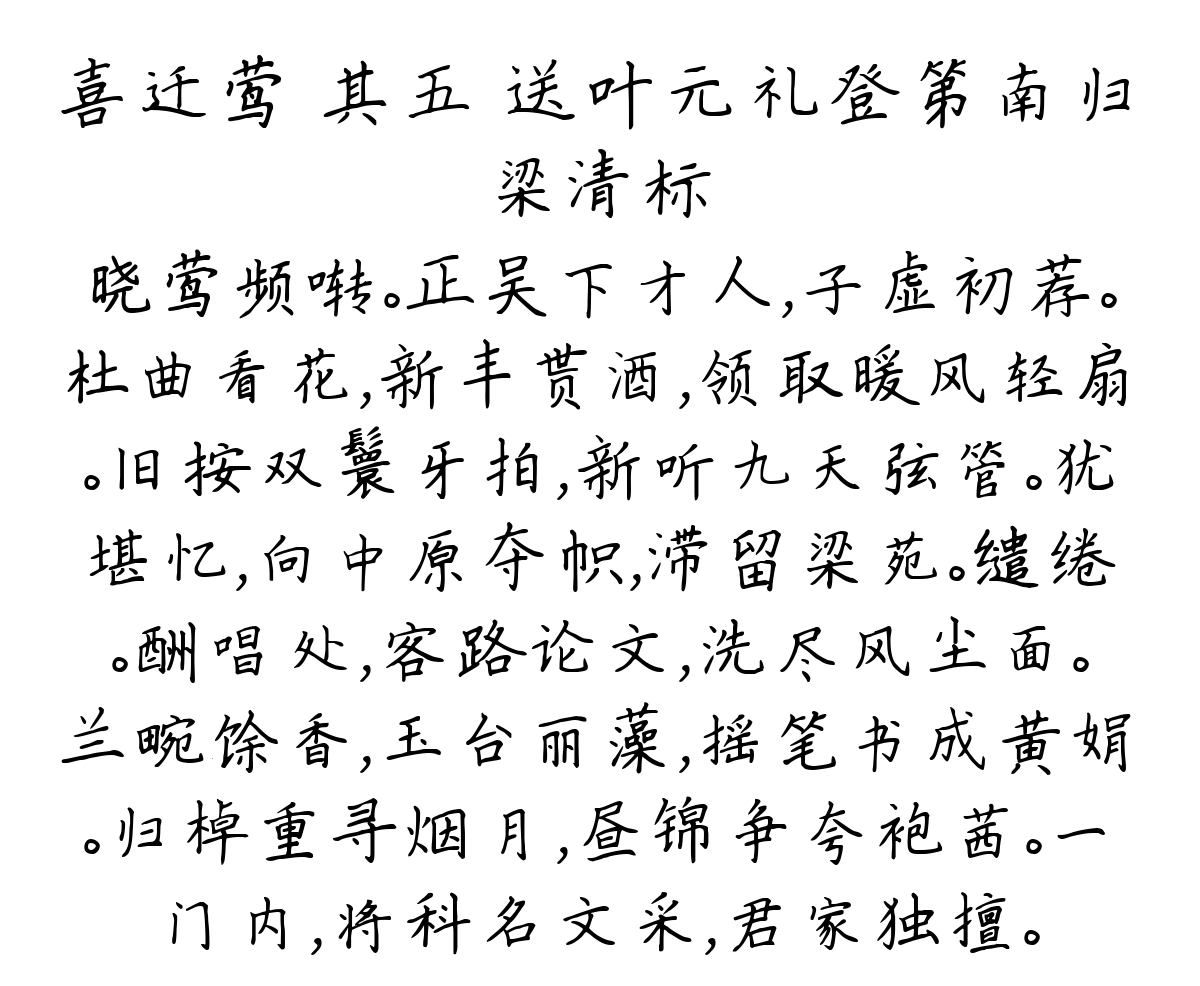 喜迁莺 其五 送叶元礼登第南归
梁清标
晓莺频啭。正吴下才人,子虚初荐。
杜曲看花,新丰贳酒,领取暖风轻扇
。旧按双鬟牙拍,新听九天弦管。犹
堪忆,向中原夺帜,滞留梁苑。缱绻
。酬唱处,客路论文,洗尽风尘面。
兰畹馀香,玉台丽藻,摇笔书成黄娟
。归棹重寻烟月,昼锦争夸袍茜。一
门内,将科名文采,君家独擅。